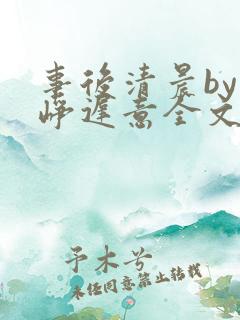 事后清晨by
峥迟意全文
予木兮
未经同意禁止转载